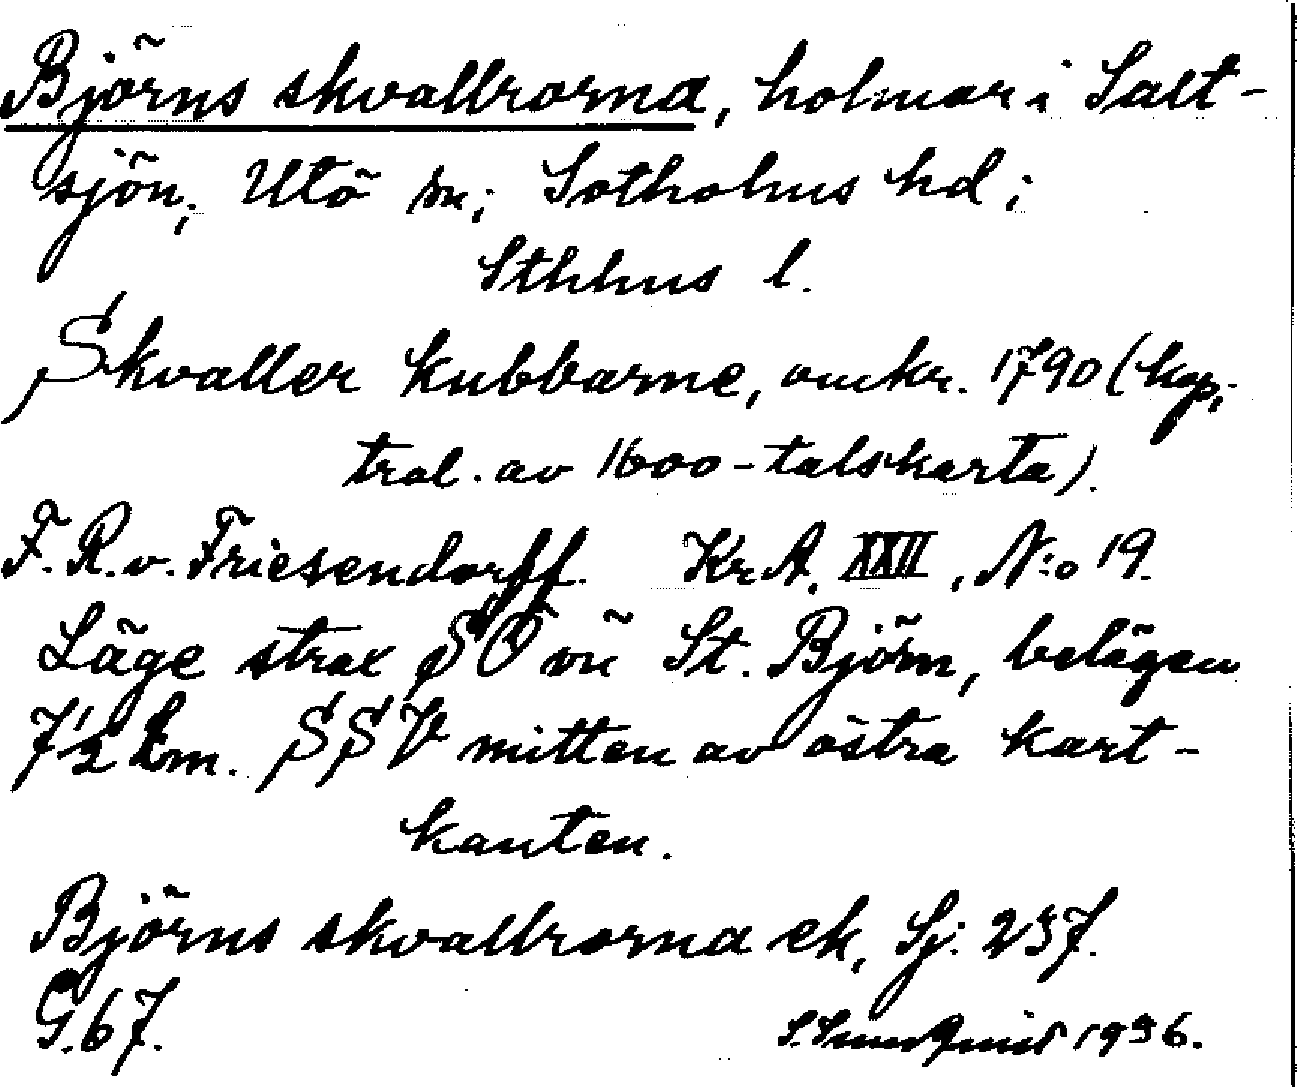 Björns skvallrorna, holmar i Salt-
sjön; Utö sn; Sotholms hd;
Sthlms l.
Skvaller kubbarne, omkr. 1790 (kop,
trol. av 1600-talskarta).
F. R. v. Friesendorff. Kr. A. XXII, N:o 19.
Läge strax SO om St. Björn, belägen
7 1/2 km. SSV mitten av östra kart-
kanten.
Björns skvallrorna ek, Sj. 237.
G. 67. 1936.